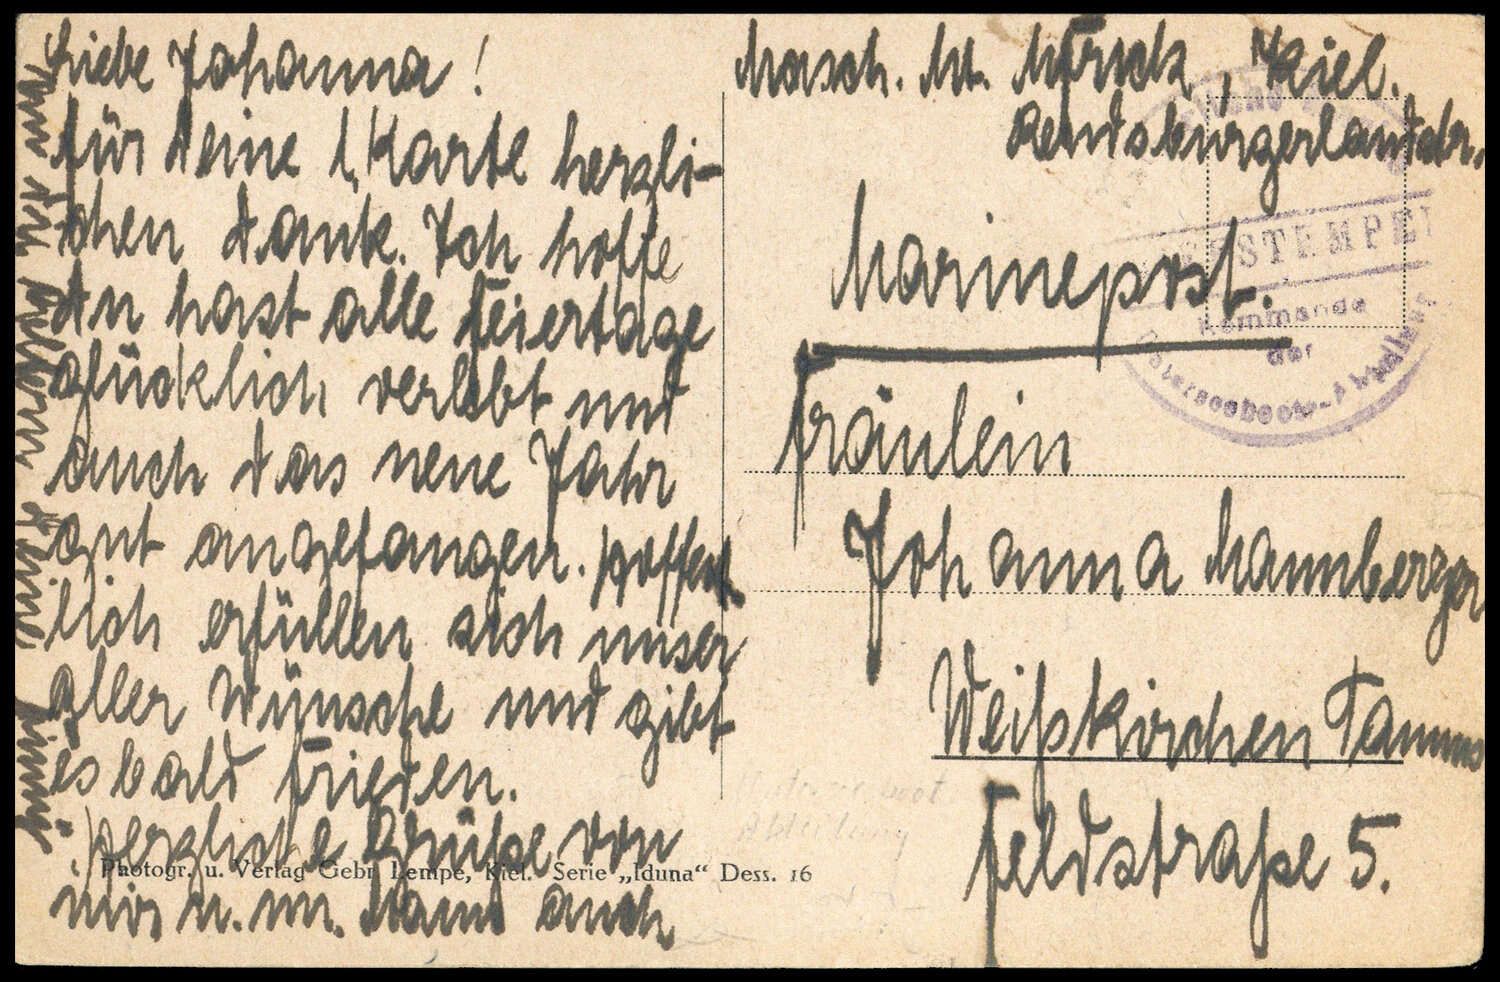 Liebe Johanna!
für Deine l. Karte herzli-
chen Dank. Ich hoffe
Du hast alle Feiertage
glücklich verlebt und
auch das neue Jahr
gut angefangen. Hoffent
lich erfüllen sich unser
aller Wünsche und gibt
es bald Frieden.
Herzliche Grüße von
mir u. m. Mann auch
an den Eltern
Masch. Mt. Mrsick, Kiel.
Rendsburgerlandstr.
Marinepost.
Fräulein
Johanna Mannberger
Weißkirchen Taunus
Feldstraße 5.
BRIEFSTEMPEL
Kommando
der
Unterseeboots-Abteilung
Unterseeboot
Abteilung
Photogr. u. Verlag Gebr. Lempe, Kiel. Serie „Iduna“ Dess. 16